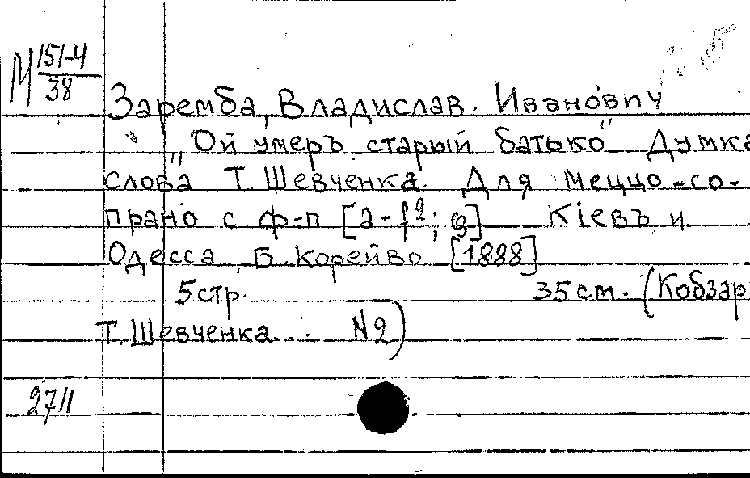 М 151-4/38
Заремба, Владислав. Иванович
„Ой умеръ старый батько" Думка
слова Т. Шевченка. Для меццо-со-
прано с ф-п [a-f²; g] Кіевъ и
Одесса, Б. Корейво [1888]
5 стр. 35 см. (Кобзар
Т. Шевченка... N 2)
27/1